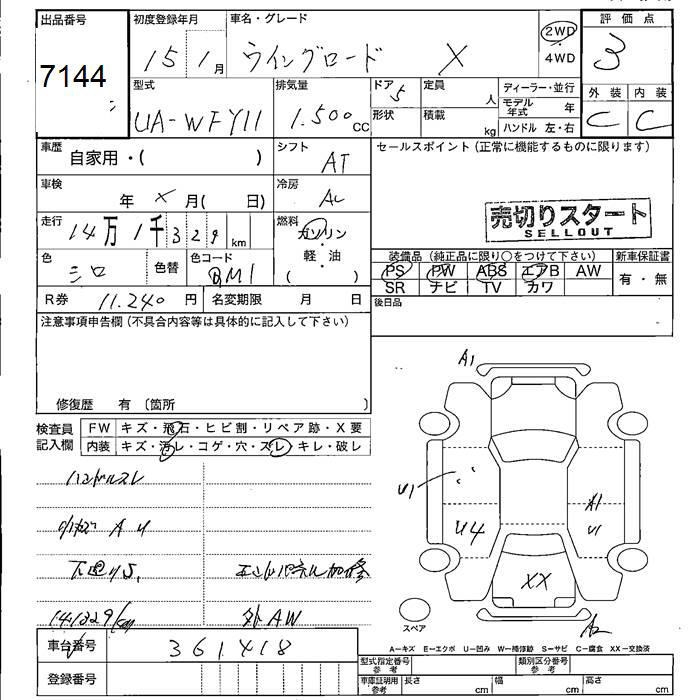 出品番号
7144
初度登録年月
15 1月
車名・グレード
ウイングロード X
2WD
4WD
評価点
3
型式
UA-WFY11
排気量
1.500cc
ドア 5
形状
定員 人
積載 kg
ディーラー・並行
モデル年式 年
ハンドル 左・右
外装 内装
C C
車歴
自家用・( )
シフト
AT
セールスポイント(正常に機能するものに限ります)
車検
年 × 月( 日)
冷房
AC
売切りスタート
SELLOUT
走行
14万1千329km
燃料
ガソリン
・
軽・油
( )
色
シロ
色替
色コード
QM1
装備品(純正品に限り○をつけて下さい)
新車保証書
PS PW ABS エアB AW
有・無
SR ナビ TV カワ
R券 11.240円
名変期限 月 日
後日品
注意事項申告欄(不具合内容等は具体的に記入して下さい)
修復歴 有 〔箇所 〕
検査員
記入欄
FW キズ・飛石・ヒビ割・リペア跡・X要
内装 キズ・汚レ・コゲ・穴・スレ・キレ・破レ
ハンドルスレ
A U
エンドパネル加修
141329km
外AW
A1
U1
U4
A1
U1
XX
A2
スペア
A－キズ E－エクボ U－凹み W－補修跡 S－サビ C－腐食 XX－交換済
車台番号
361418
登録番号
型式指定番号
参考
類別区分番号
参考
車庫証明用
参考
長さ cm
幅 cm
高さ cm